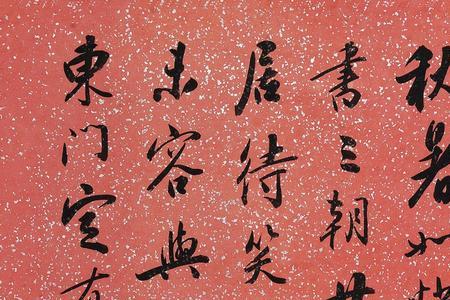 秋暑如
書三朝
居待笑
未容與
東门定有